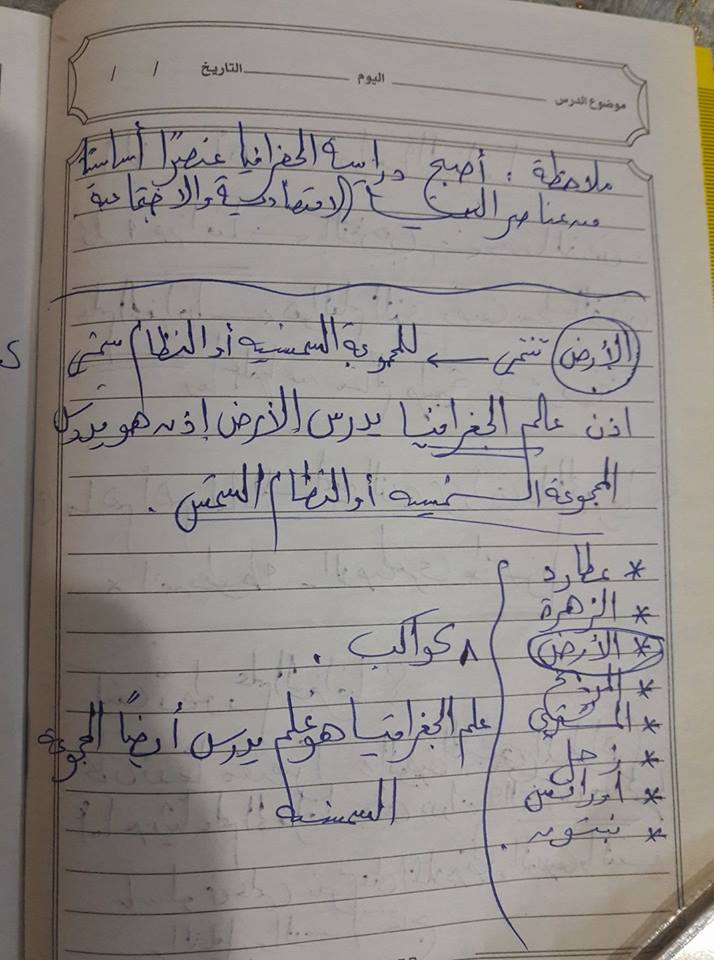 موضوع الدرس اليوم التاريخ / /
ملاحظة : أصبح دراسة الجغرافيا عنصرًا أساسيًا
من عناصر البنيـــا الاقتصادية والاجتماعية
الأرض تنتمي ← للمجموعة الشمسية أو النظام شمسي
اذن عالم الجغرافيا يدرس الأرض إذن هو يدرس
المجموعة الشمسية أو النظام الشمسي .
* عطارد
* الزهرة
* الأرض
* المريخ
* المشتري
* زحل
* اورانس
* نبتون .
٨ كواكب .
علم الجغرافيا هو علم يدرس أيضًا المجموعة
الشمسية